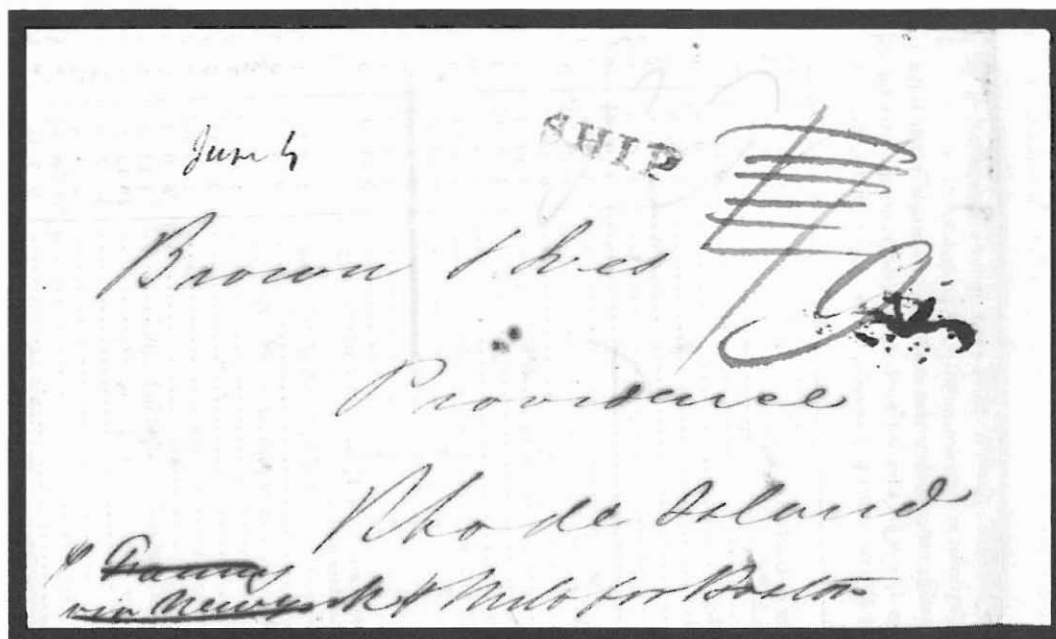 June 4
SHIP
Brown & Ives
Providence
Rhode Island
p Fanny
via Newyork p Milo for Boston